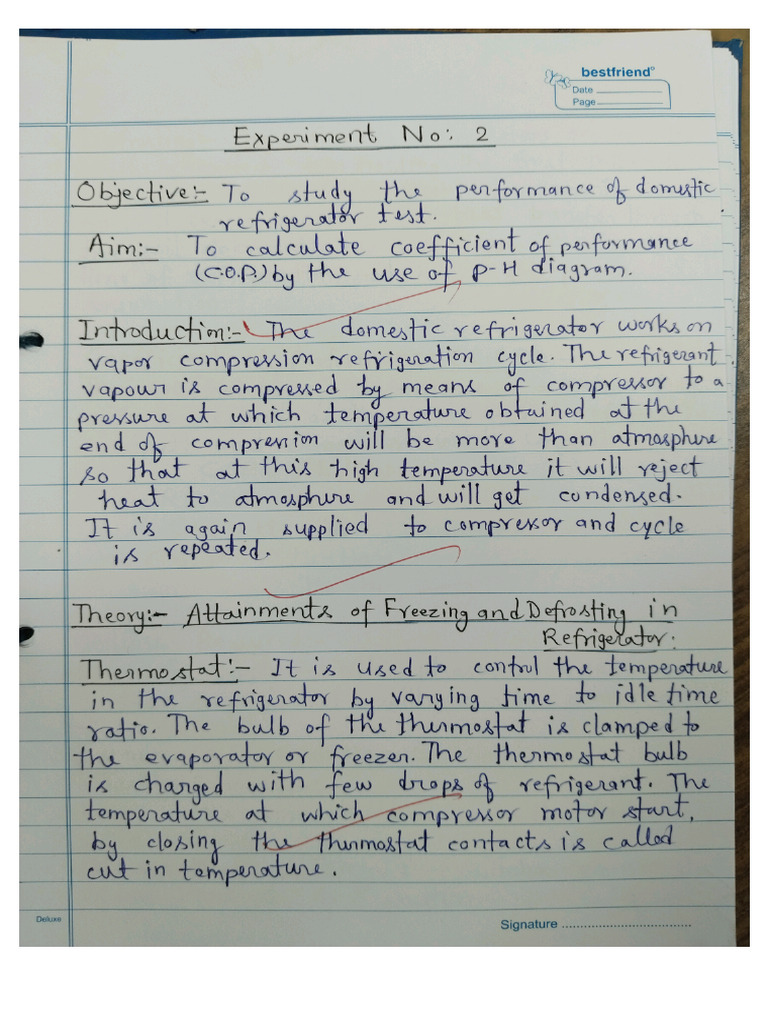 bestfriend
Date
Page
Experiment No: 2
Objective:- To study the performance of domestic
refrigerator test.
Aim:- To calculate coefficient of performance
(C.O.P.) by the use of P-H diagram.
Introduction:- The domestic refrigerator works on
vapor compression refrigeration cycle. The refrigerant
vapour is compressed by means of compressor to a
pressure at which temperature obtained at the
end of compression will be more than atmosphere
so that at this high temperature it will reject
heat to atmosphere and will get condensed.
It is again supplied to compressor and cycle
is repeated.
Theory:- Attainments of Freezing and Defrosting in
Refrigerator:
Thermostat:- It is used to control the temperature
in the refrigerator by varying time to idle time
ratio. The bulb of the thermostat is clamped to
the evaporator or freezer. The thermostat bulb
is charged with few drops of refrigerant. The
temperature at which compressor motor start,
by closing the thermostat contacts is called
cut in temperature.
Deluxe
Signature ..................................